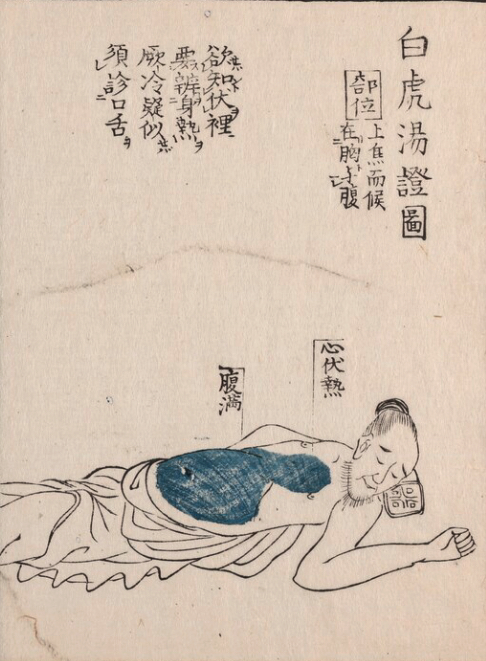 白虎湯證圖
部位
上焦而候
在胸与腹
欲知伏裡
要辨身熱
厥冷疑似
須診口舌
心伏熱
腹満